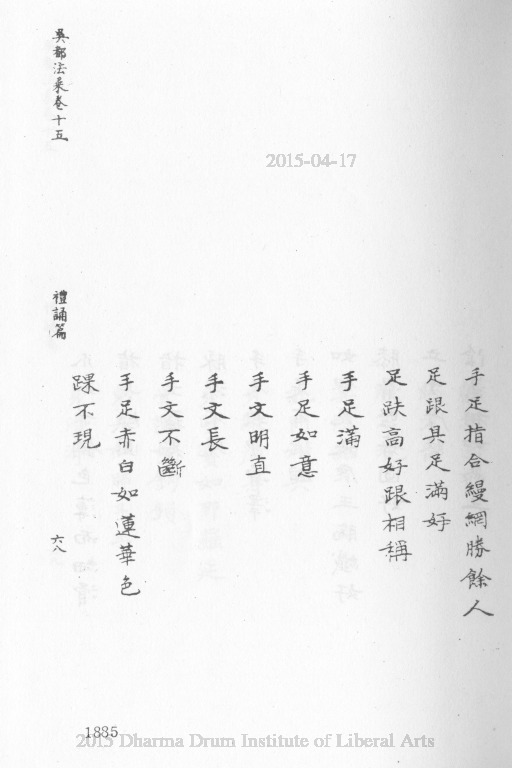 手足指合縵網勝餘人
足跟具足滿好
足趺高好跟相稱
手足滿
手足如意
手文明直
手文長
手文不斷
手足赤白如蓮華色
踝不現
吳都法乘卷十五
禮誦篇
六八
1885
2015-04-17
2015 Dharma Drum Institute of Liberal Arts